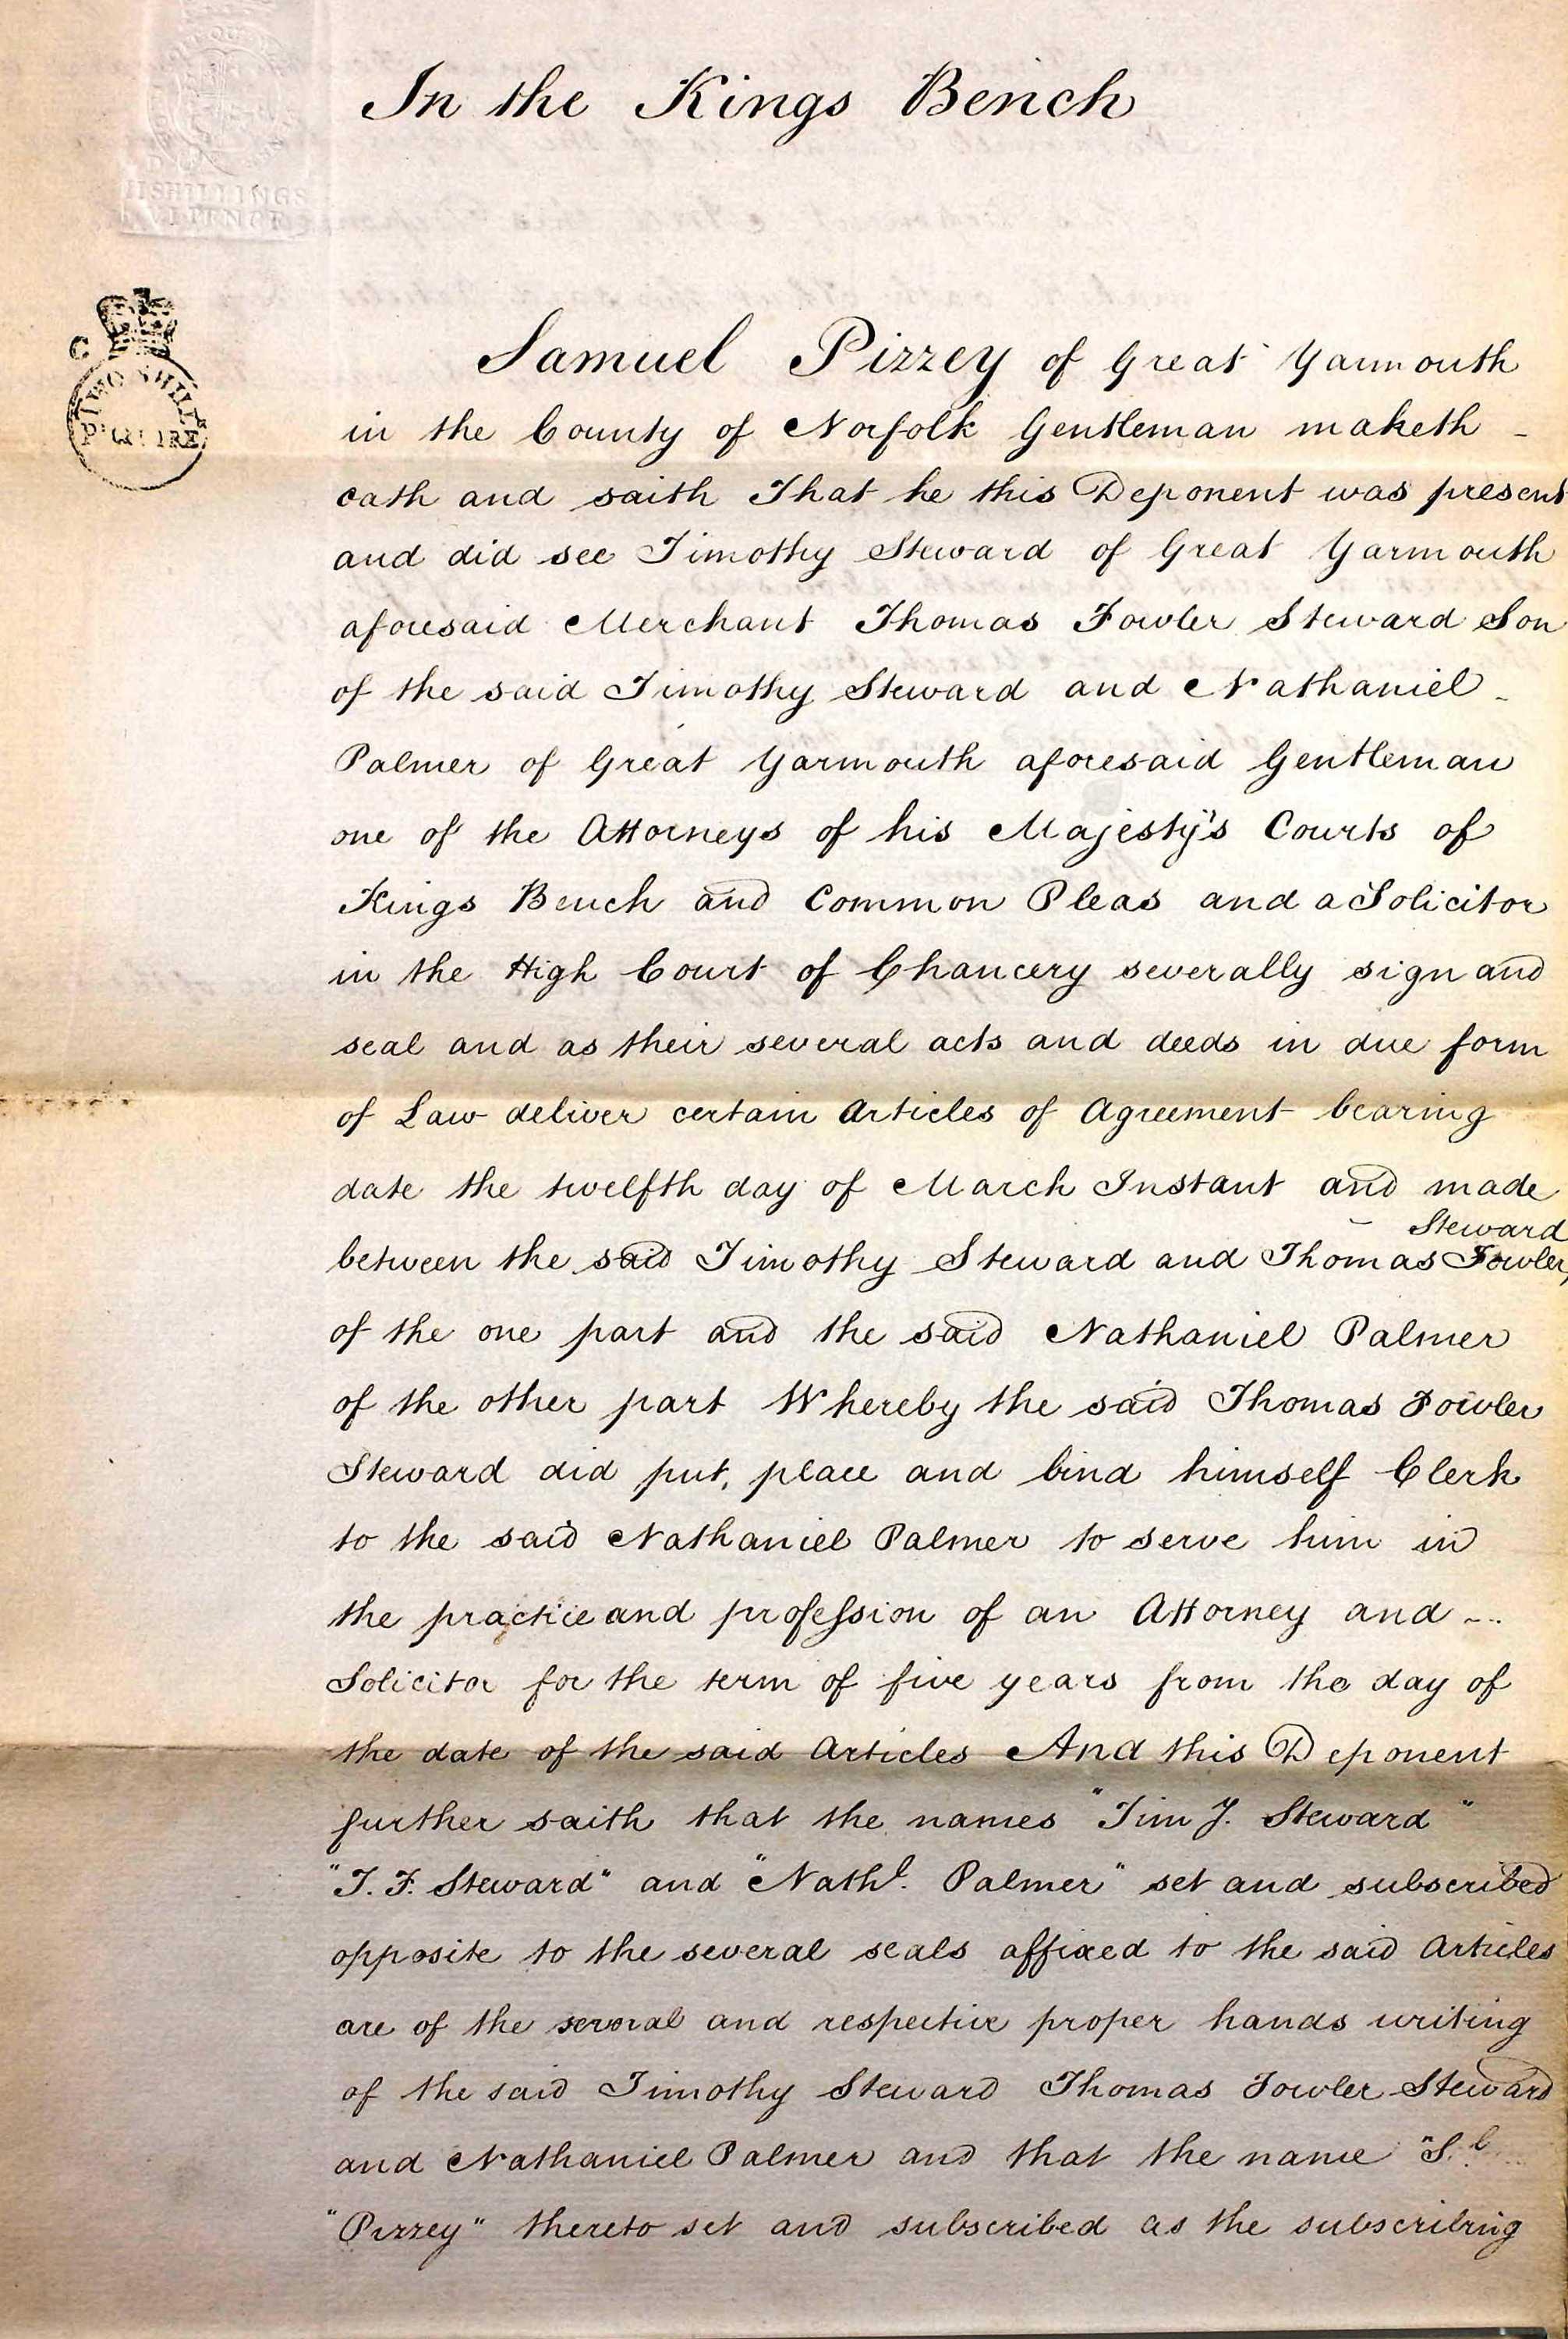 In the Kings Bench
II SHILLINGS
TWO SHILLS
Pr. QUIRE
C
Samuel Pizzey of Great Yarmouth
in the County of Norfolk Gentleman maketh -
oath and saith That he this Deponent was present
and did see Timothy Steward of Great Yarmouth
aforesaid Merchant Thomas Fowler Steward Son
of the said Timothy Steward and Nathaniel -
Palmer of Great Yarmouth aforesaid Gentleman
one of the Attorneys of his Majesty's Courts of
Kings Bench and Common Pleas and a Solicitor
in the High Court of Chancery severally sign and
seal and as their several acts and deeds in due form
of Law deliver certain Articles of Agreement bearing
date the twelfth day of March Instant and made
Steward
between the said Timothy Steward and Thomas Fowler
of the one part and the said Nathaniel Palmer
of the other part Whereby the said Thomas Fowler
Steward did put, place and bind himself Clerk
to the said Nathaniel Palmer to serve him in
the practice and profession of an Attorney and -
Solicitor for the term of five years from the day of
the date of the said Articles And this Deponent
further saith that the names "Tim J. Steward"
"T. F. Steward" and "Nathl. Palmer" set and subscribed
opposite to the several seals affixed to the said Articles
are of the several and respective proper hands writing
of the said Timothy Steward Thomas Fowler Steward
and Nathaniel Palmer and that the name "S.
"Pizzey" thereto set and subscribed as the subscribing